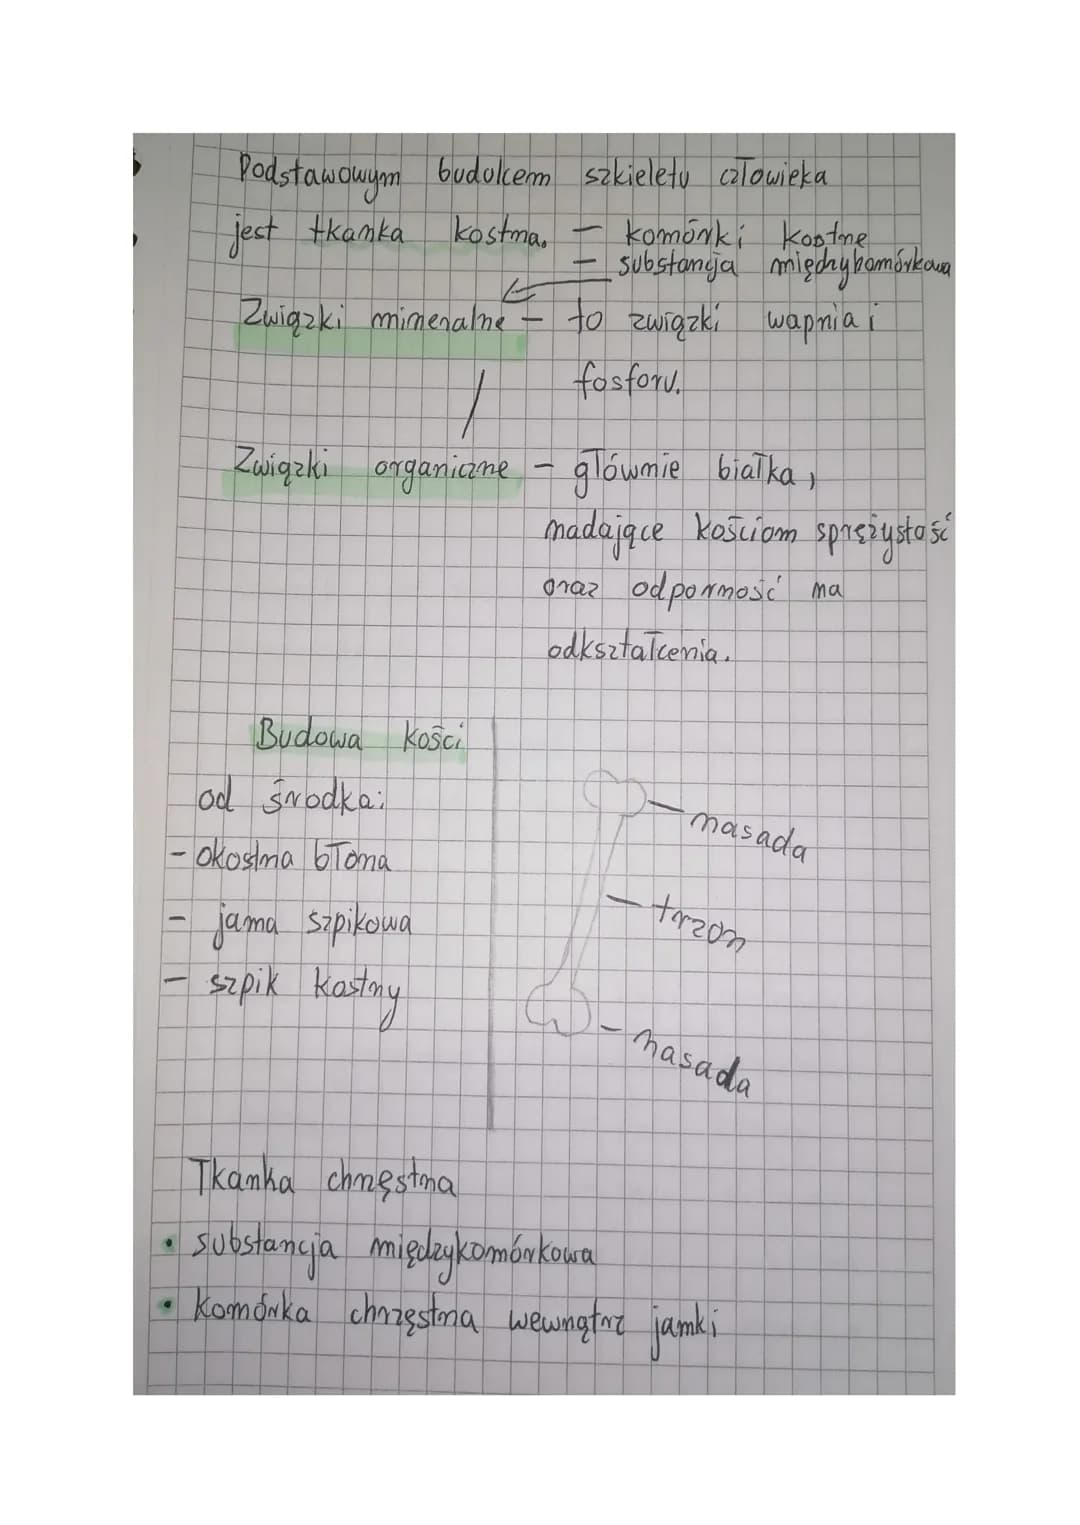 Podstawowym budulcem szkieletu człowieka
jest tkanka kostna. – komórki kostne
– substancja międzykomórkowa
Związki mineralne – to związki wapnia i
fosforu.
Związki organiczne – głównie białka,
nadające kościom sprężystość
oraz odporność na
odkształcenia.
Budowa kości
od środka:
- okostna błona
- jama szpikowa
- szpik kostny
- nasada
- trzon
- nasada
Tkanka chrzęstna
• substancja międzykomórkowa
• komórka chrzęstna wewnątrz jamki